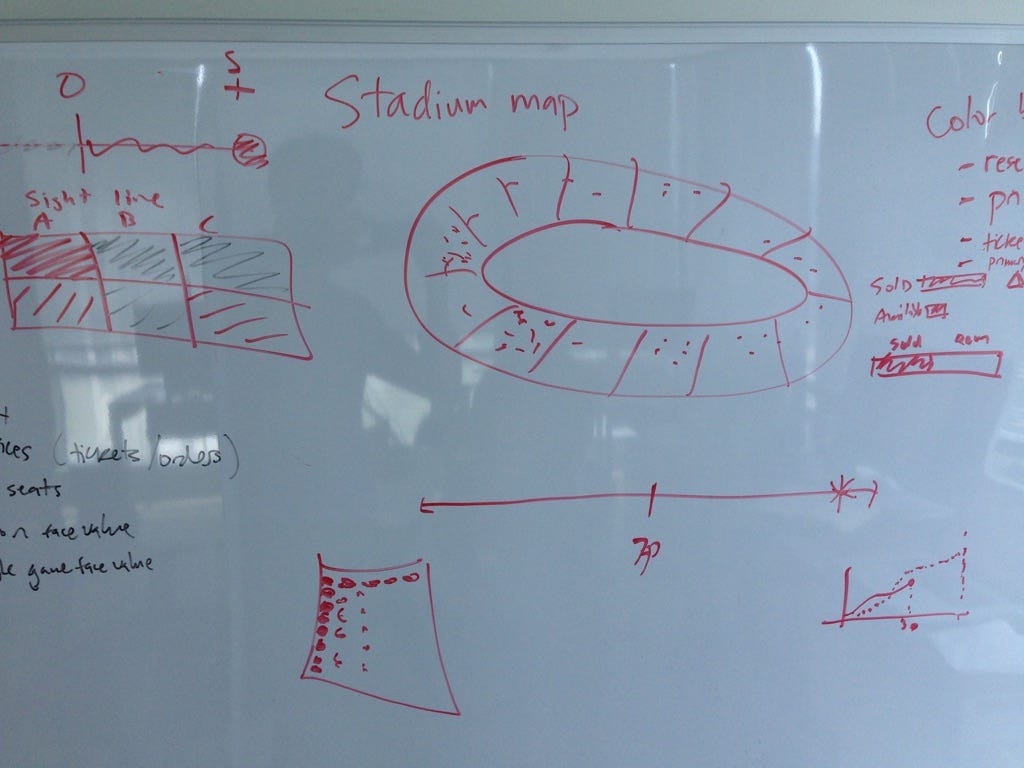 O
S
+
Stadium map
Color
- rese
- pri
- ticke
- primary
Sight line
A B C
Sold
Sold
(tickets/orders)
seats
on face value
game face value
30
30